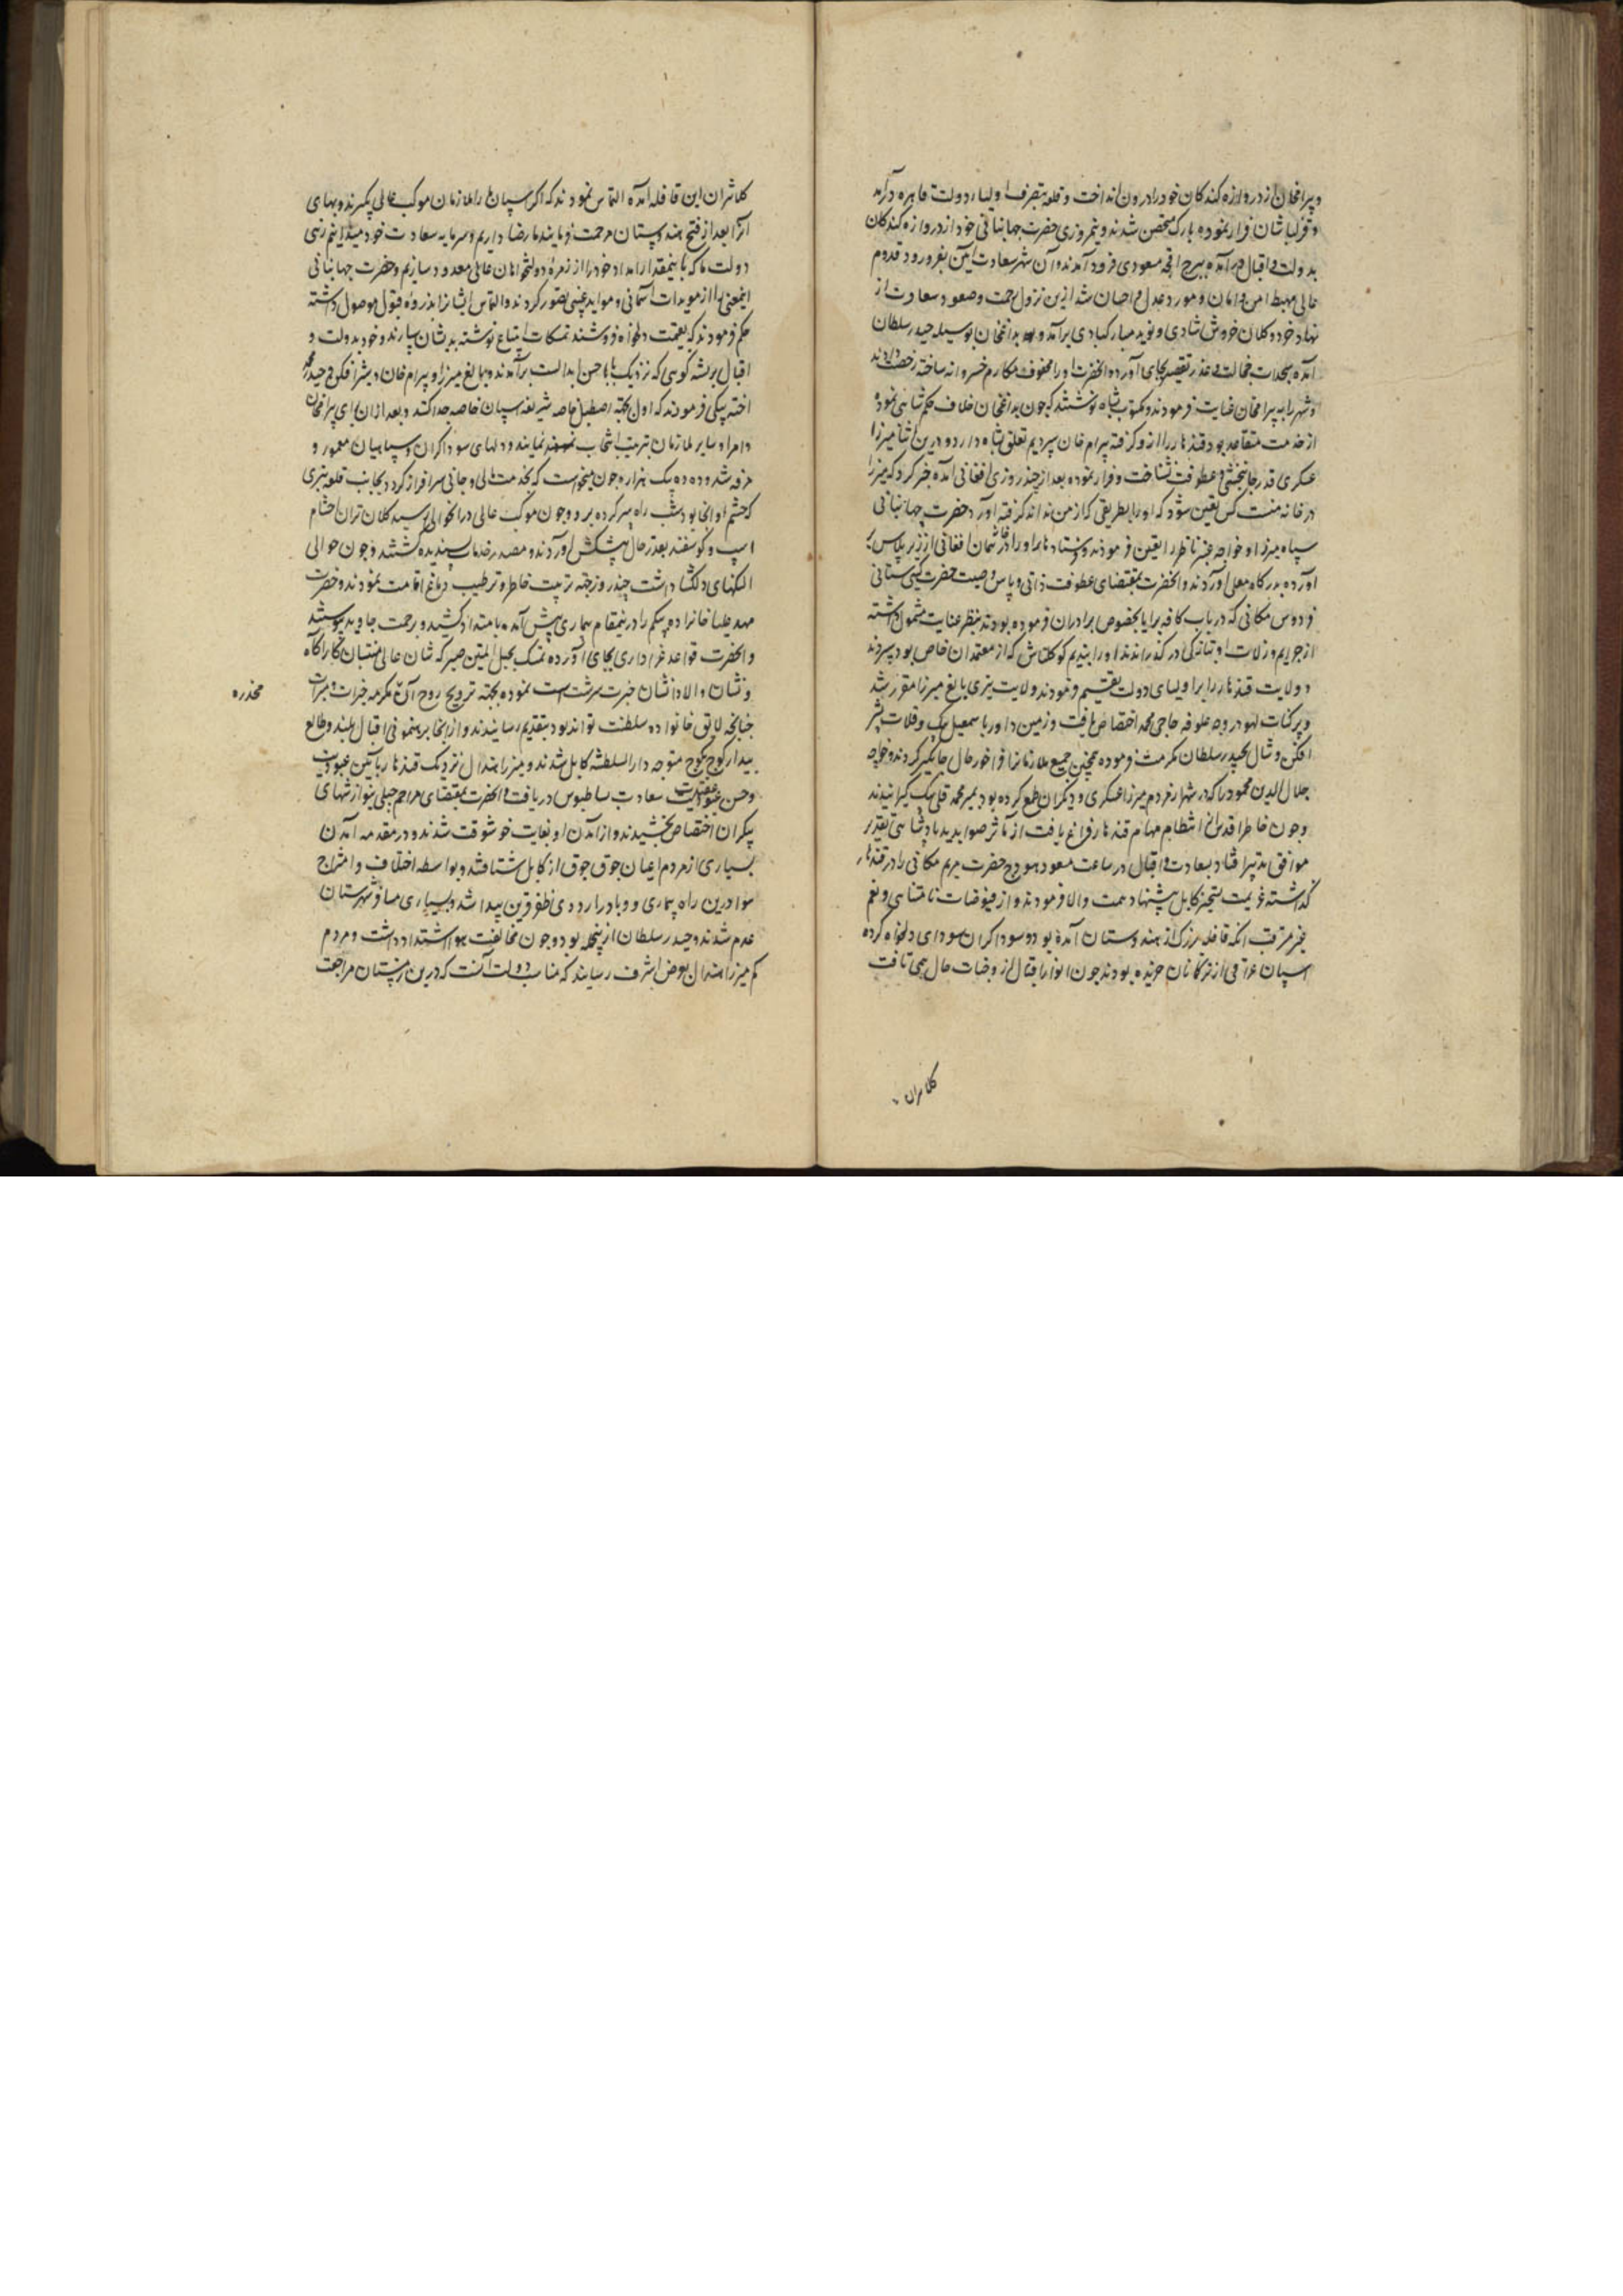 و بیرامخان از دروازه کندکان خود را درون انداخت و قلعه بتصرف اولیاء دولت قاهره درآمد
و قزلباشان فرار نموده بارک متحصن شدند و نیمروزی حضرت جهانبانی خود از دروازه کندکان
بدولت و اقبال درآمده ببرج اقچه مسعودی فرود آمدند و آن شهر سعادت آیین بفر ورود قدوم
عالی مهبط امن و امان و مورد عدل و احسان شد ازین نزول رحمت و صعود سعادت از
نهاد خرد و کلان خروش شادی و نوید مبارکبادی برآمد و بداغخان بوسیله حیدر سلطان
آمده بسجدات خجالت و عذر تقصیر بجای آورد و آنحضرت او را محفوف مکارم خسروانه ساخته رخصت دادند
و شهر را به بیرامخان عنایت فرمودند و مکتوب بشاه نوشتند که چون بداغخان خلاف حکم شاهی نموده
از خدمت متقاعد بود قندهار را ازو گرفته بیرام خان سپردیم تعلق بشاه دارد و درین اثنا میرزا
عسکری قدر جانبخشی و عطوفت نشناخت و فرار نموده بعد از چند روزی افغانی آمده خبر کرد که میرزا
در خانه منست کس تعین شود که او را بطریقی که از من نداند گرفته آورد حضرت جهانبانی
سپاه میرزا و خواجه عنبر ناظر را تعین فرمودند و فرستادند تا برادر او را در خانمان افغانی از زیر پلاس
آورده بدرگاه معلی آوردند و آنحضرت بمقتضای عطوفت ذاتی و پاس وصیت حضرت گیتی ستانی
فردوس مکانی که در باب کافه برایا بخصوص برادران فرموده بودند بنظر عنایت مشمول داشته
از جرایم و زلات او بتازگی درگذراندند او را بندیم کوکلتاش که از معتمدان خاص بود سپردند
و ولایت قندهار را برا ولیای دولت تقسیم فرمودند ولایت تیری بالغ میرزا مقرر شد
و پرکنات لهو در وجه علوفه حاجی محمد اختصاص یافت و زمین داور باسمعیل بیک و قلات بشیر
افکن و شال بحیدر سلطان مکرمت فرموده همچنین جمیع ملازمان را فراخور حال جایگیر کردند و خواجه
جلال الدین محمود را که در شهر از مردم میرزا عسکری و دیگران طمع کرده بود بمیر محمد قلی بیک گیرانیدند
و چون خاطر اقدس از انتظام مهام قندهار فراغ یافت از مآثر صوابدید پادشاهی تقدیر
موافق تدبیر افتاد بسعادت و اقبال در ساعت مسعود هودج حضرت مریم مکانی را در قندهار
گذاشته عزیمت تسخیر کابل پیشنهاد همت والا فرمودند و از فیوضات نامتناهی و نعم
غیر مترقب آنکه قافله بزرگ از هندوستان آمده بود و سوداگران سودای دلخواه کرده
اسپان عراقی از ترکانان خریده بودند چون انوار اقبال از وضات حال همی تافت
کلانتران
کلانتران این قافله آمده التماس نمودند که اگر اسپان را ملازمان موکب عالی بگیرند و بهای
آنرا بعد از فتح هندوستان مرحمت فرمایند ما رضا داریم و سرمایه سعادت خود میدانیم زهی
دولت ما که باینمقدار امداد خود را از زمره دولتخواهان عالی معدود سازیم و حضرت جهانبانی
اینمعنی را از مویدات آسمانی و مواید غیبی تصور کردند و التماس ایشانرا بذروه قبول موصول داشته
حکم فرمودند که بقیمت دلخواه فروشند تمسکات ابتیاع نوشته بدیشان سپارند و خود بدولت و
اقبال بر پشه کوهی که نزدیک بابا حسن ابدالست برآمدند و بالغ میرزا و بیرام خان و شیر افکن و حیدر محمد
اخته بیگی فرمودند که اول بجهة اصطبل خاصه شریفه اسپان خاصه جدا کنند و بعد از ان برای بیرامخان
و امرا و سایر ملازمان بترتیب انتخاب نمایند و دلهای سوداگران و سپاهیان معمور و
مرفه شد و دده بیک هزاره چون میخواست که بخدمت عالی و جانی سرافراز گردد بجانب قلعه تیری
که حشم او آنجا بود شب راه سر کرده برد و چون موکب عالی در آنحوالی رسید کلانتران احشام
اسپ و گوسفند بقدر حال پیشکش آوردند و مصدر خدمات پسندیده گشتند و چون حوالی
النگهای دلگشا داشت چند روز بجهة تربیت خاطر و ترطیب دماغ اقامت نمودند و حضرت
مهد علیا خانزاده بیگم را درینمقام بیماری پیش آمده بامتداد کشید و برحمت جاوید پیوستند
و آنحضرت قواعد عزاداری بجای آورده تمسک بحبل المتین صبر که شان عالی منتسبان کارآگاه
و نشان والا دانشان خبرت سرشت است نموده بجهة ترویح روح آن مکرمه خیرات و مبرات
مخدره
چنانچه لایق خانواده سلطنت تواند بود بتقدیم رسانیدند و از آنجا برهنمونی اقبال بلند و طالع
بیدار کوچ بکوچ متوجه دارالسلطنه کابل شدند و میرزا هندال نزدیک قندهار بآیین عبودیت
و حسن عقیدت سعادت بساطبوس دریافت و آنحضرت بمقتضای مراحم جبلی بنوازشهای
بیکران اختصاص بخشیدند و از آمدن او بغایت خوشوقت شدند و در مقدمه آمدن
بسیاری از مردم اعیان جوق جوق از کابل شتافتند و بواسطه اختلاف و امتزاج
هوا درین راه بیماری و وبا در اردوی ظفر قرین پیدا شد و بسیاری مسافر شهرستان
عدم شدند و حیدر سلطان ازینجمله بود و چون مخالفت هوا اشتداد داشت و مردم
کم میرزا هندال بعرض اشرف رسانید که مناسب دولت آنست که درین زمستان مراجعت